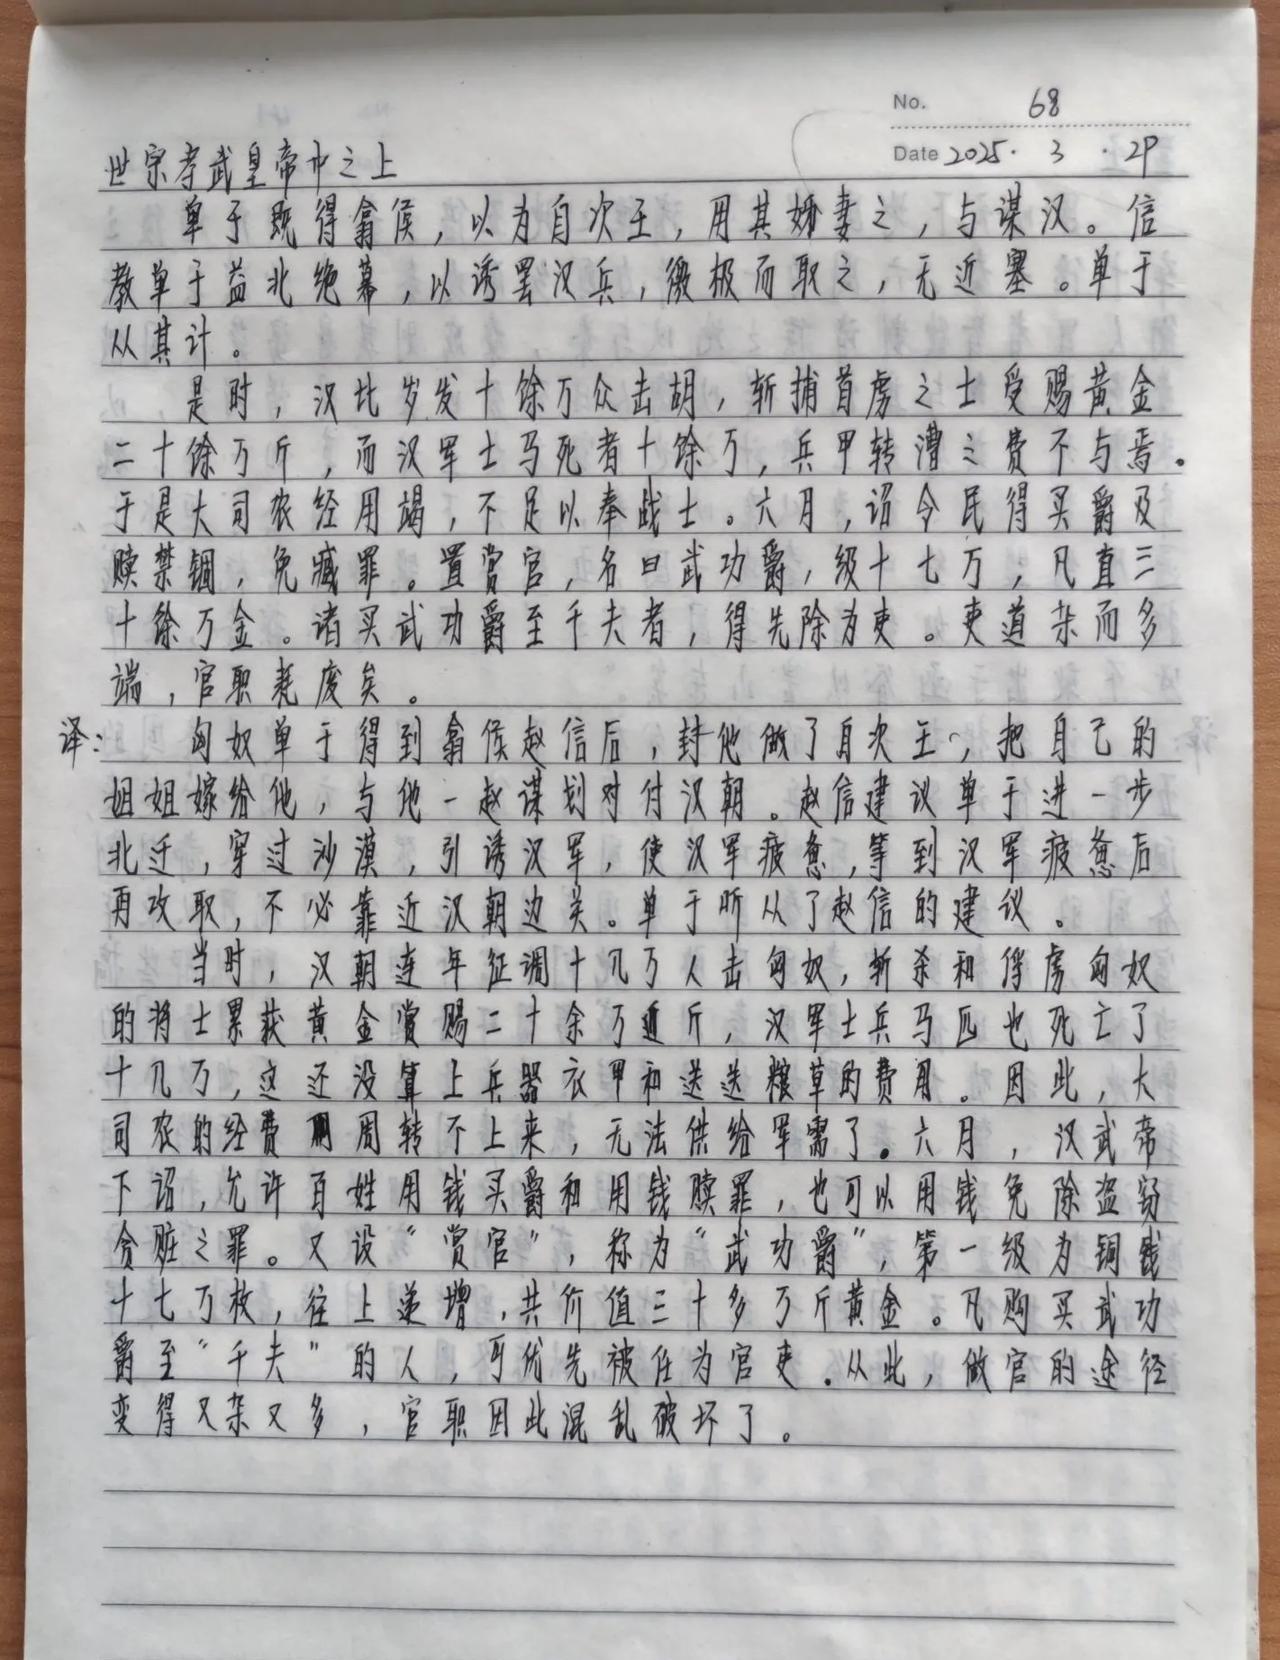 No. 68
Date 2025. 3 . 29
世宗孝武皇帝中之上
单于既得翕侯，以为自次王，用其姊妻之，与谋汉。信
教单于益北绝幕，以诱罢汉兵，徼极而取之，无近塞。单于
从其计。
是时，汉比岁发十馀万众击胡，斩捕首虏之士受赐黄金
二十馀万斤，而汉军士马死者十馀万，兵甲转漕之费不与焉。
于是大司农经用竭，不足以奉战士。六月，诏令民得买爵及
赎禁锢，免臧罪。置赏官，名曰武功爵，级十七万，凡直三
十馀万金。诸买武功爵至千夫者，得先除为吏。吏道杂而多
端，官职耗废矣。
译：匈奴单于得到翕侯赵信后，封他做了自次王，把自己的
姐姐嫁给他，与他一赵谋划对付汉朝。赵信建议单于进一步
北迁，穿过沙漠，引诱汉军，使汉军疲惫，等到汉军疲惫后
再攻取，不必靠近汉朝边关。单于听从了赵信的建议。
当时，汉朝连年征调十几万人击匈奴，斩杀和俘虏匈奴
的将士累获黄金赏赐二十余万斤，汉军士兵马匹也死亡了
十几万，这还没算上兵器衣甲和送送粮草的费用。因此，大
司农的经费周转不上来，无法供给军需了。六月，汉武帝
下诏，允许百姓用钱买爵和用钱赎罪，也可以用钱免除盗窃
贪赃之罪。又设“赏官”，称为“武功爵”，第一级为铜钱
十七万枚，往上递增，共价值三十多万斤黄金。凡购买武功
爵至“千夫”的人，可优先被任为官吏。从此，做官的途径
变得又杂又多，官职因此混乱破坏了。